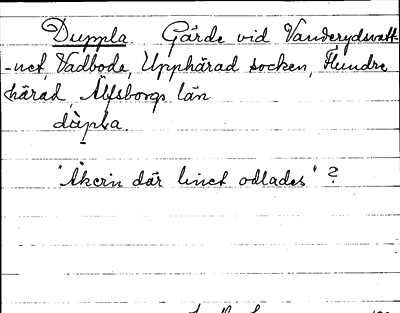 Duppla. Gärde vid Vanderydsvatt-
-net, Vadboda, Upphärad socken, Flundre
härad, Älfsborgs län
dùpla.
"Åkern där linet odlades" ?